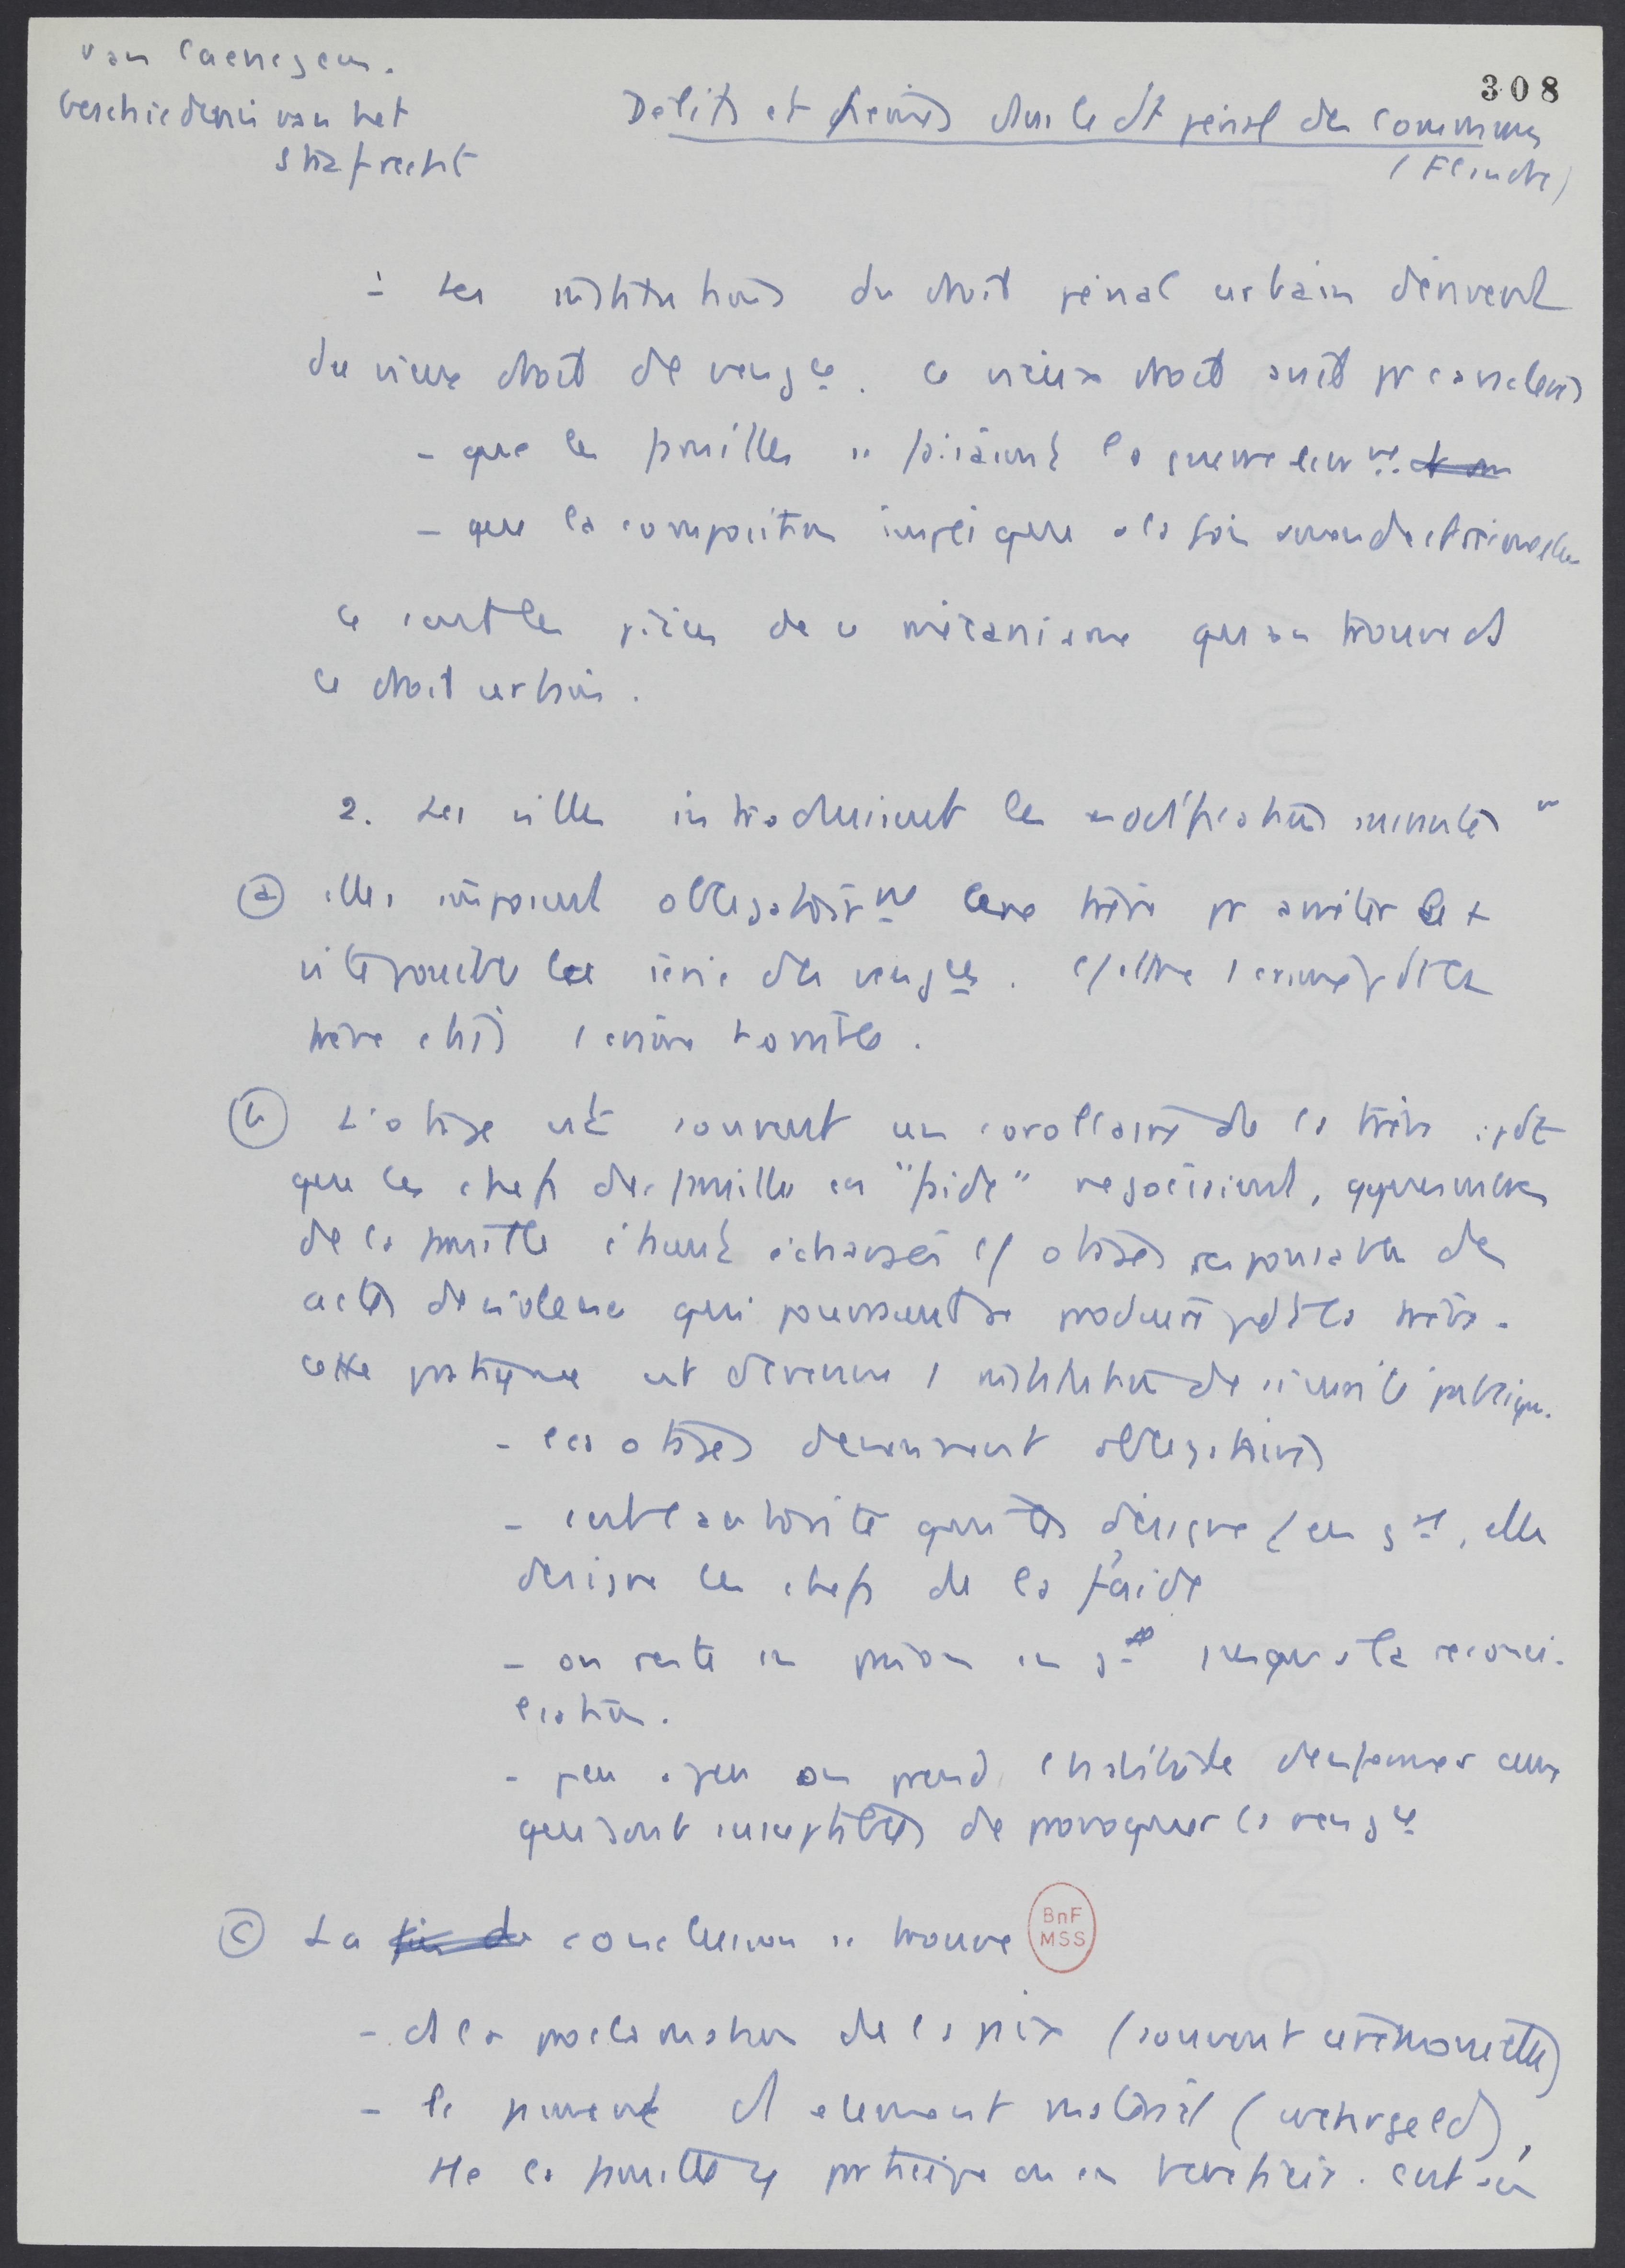 van Caenegem.
Geschiedenis van het
strafrecht
308
Délits et peines dans le dt pénal des communes
(Flandre)
1 Les institutions du droit pénal urbain dérivent
du vieux droit de veng ce. Ce vieux droit avait pr
- que les familles faisaient la guerre
- que la composition implique à la fois amende et
ce sont les pièces de ce mécanisme qu'on trouve ds
ce droit urbain.
2. Les villes introduisent les modifications suivantes
(a) elles imposent obligatoirmt une trève pr arrêter et
interrompre la série des veng ces. C/ être pdt la
trève était
(b) L'otage est souvent un corollaire de la trève. pdt
que les chefs des familles en "faide" négociaient, qques membres
de la famille étaient échangés c/ otages responsables des
actes de violence qui pourraient se produire pdt la trève.
Cette pratique est devenue 1 institution de sécurité publique.
- les otages deviennent obligatoires
- c'est l'autorité qui les désigne (en gal, elle
désigne les chefs de la faide
- on reste en prison en gal jusqu'à la réconci-
liation.
- peu à peu on prend l'habitude d'enfermer ceux
qui sont susceptibles de provoquer la veng ce
(c) La fin de conclusion se trouve
BnF
MSS
- ds la proclamation de la paix (souvent cérémonielle)
- le paiement d'1 élément matériel (wehrgeld),
tte la famille y participe ou en bénéficie. C'est